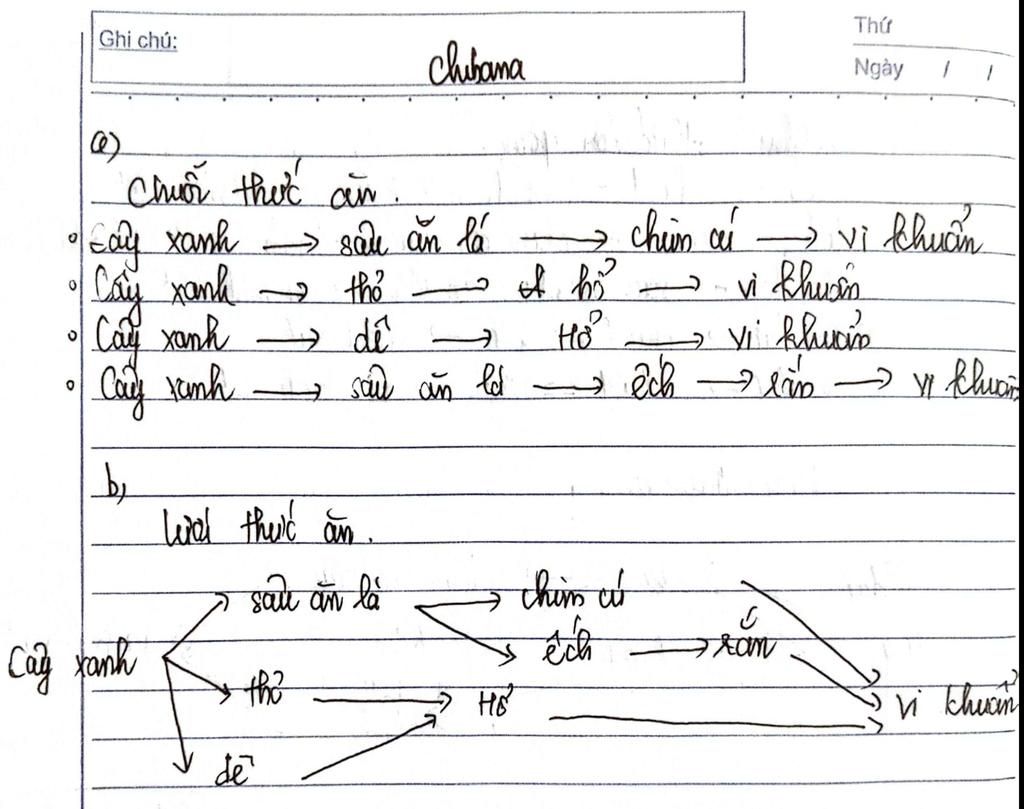 Ghi chú:
Chibana
Thứ
Ngày / /
a)
Chuỗi thức ăn.
Cây xanh → sâu ăn lá → chim cú → vi khuẩn
Cây xanh → thỏ → hổ → vi khuẩn
Cây xanh → dê → Hổ → vi khuẩn
Cây xanh → sâu ăn lá → ếch → rắn → vi khuẩn
b,
lưới thức ăn.
sâu ăn lá → chim cú
Cây xanh
ếch → rắn
thỏ → Hổ
vi khuẩn
dê